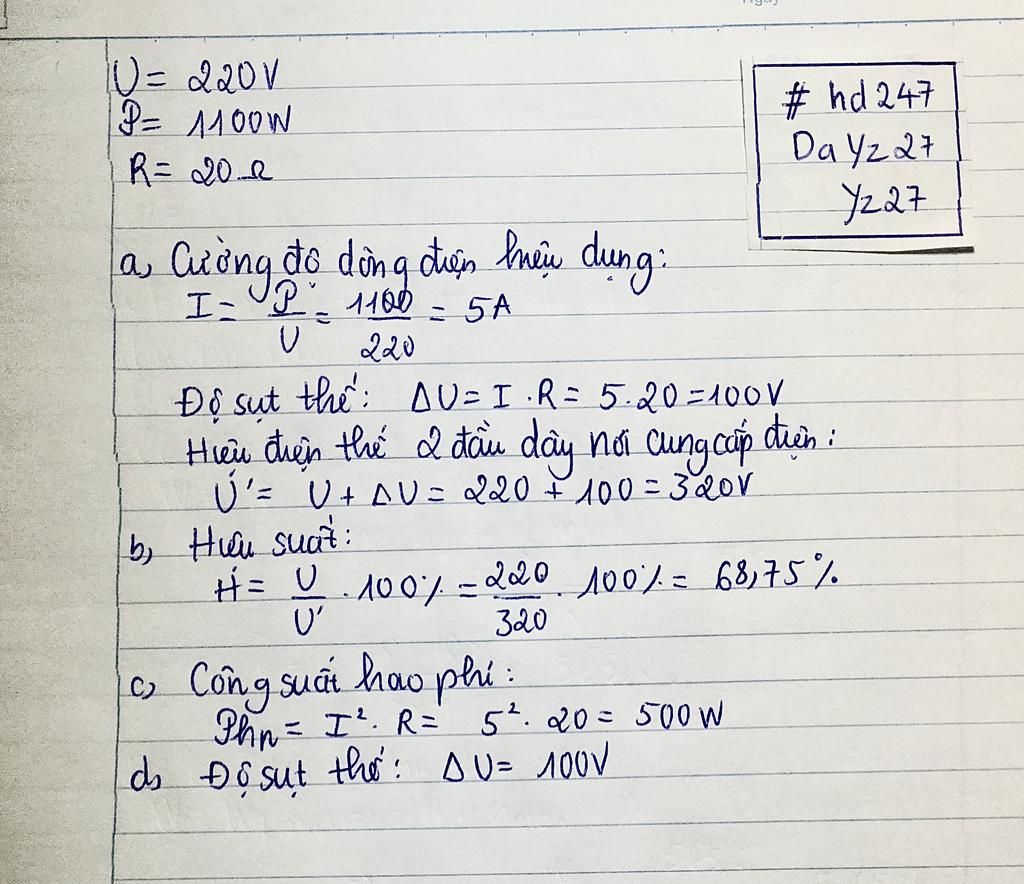 U = 220V
P = 1100W
R = 20Ω
# hd247
Da Yz27
Yz27
a, Cường độ dòng điện hiệu dụng:
I = P/U = 1100/220 = 5A
Độ sụt thế: ΔU = I . R = 5.20 = 100V
Hiệu điện thế 2 đầu dây nơi cung cấp điện:
U' = U + ΔU = 220 + 100 = 320V
b, Hiệu suất:
H = U/U' . 100% = 220/320 . 100% = 68,75%
c, Công suất hao phí:
Phn = I². R = 5². 20 = 500W
d, Độ sụt thế: ΔU = 100V